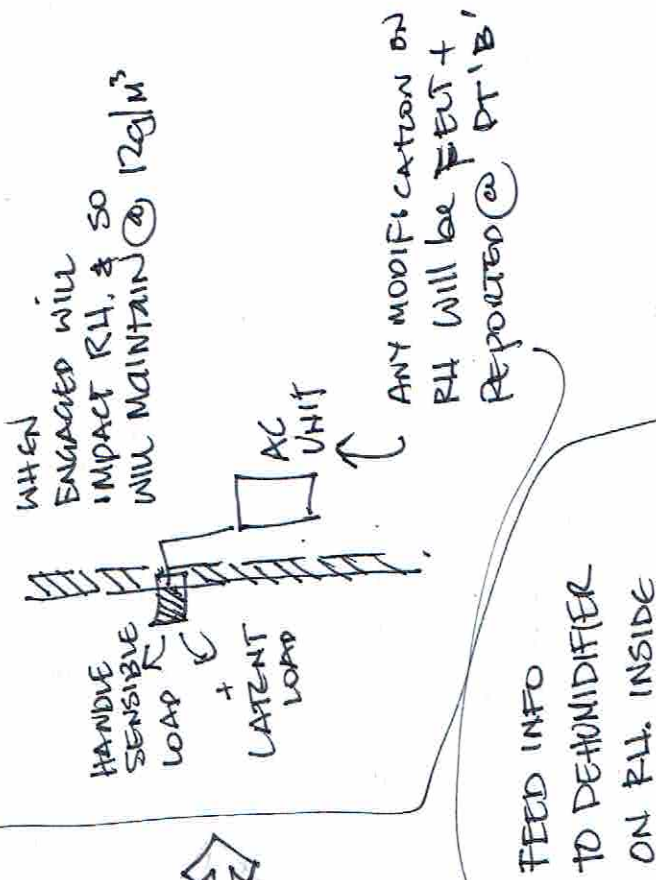 WHEN
ENGAGED WILL
IMPACT RH. & SO
WILL MAINTAIN @ 12g/M³
HANDLE
SENSIBLE
LOAD
+
LATENT
LOAD
AC
UNIT
ANY MODIFICATION ON
RH WILL be FELT +
REPORTED @ PT 'B'
FEED INFO
TO DEHUMIDIFIER
ON RH. INSIDE